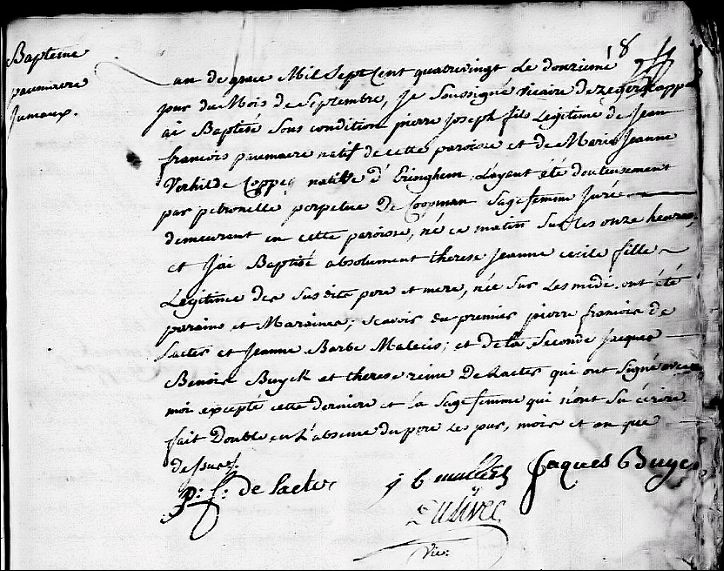 18
Bapteme
paumaere
Jumaux.
an de grace Mil Sept Cent quatrevingt Le douzieme
jour du Mois de Septembre, Je Soussigné vicaire de zegerscappel
ai Baptisé Sous condition pierre Joseph fils Légitime de Jean
francois paumaere natif de cette paroisse et de Marie Jeanne
Vorhilde Coppey native d'Eringhem L'ayant été douteusement
par petronelle perpetue De Coopman Sage femme Jurée
demeurant en cette paroisse, né ce matin Sur les onze heures,
et J'ai Baptisé absolument therese Jeanne cecile fille
Légitime des Susdits pere et mere, née Sur Les midi, ont été
parains et Maraines; scavoir du premier pierre francois de
Saeter et Jeanne Barbe ; et de La Seconde Jacques
Benoit Buyck et therese reine De Saeter qui ont Signé avec
moi excepté cette derniere et la Sage femme qui n'ont Su écrire
fait Double en L'absence du pere Les jour, mois et an que
dessus.
p: f: de Saeter j b Jacques Buyck
vic: